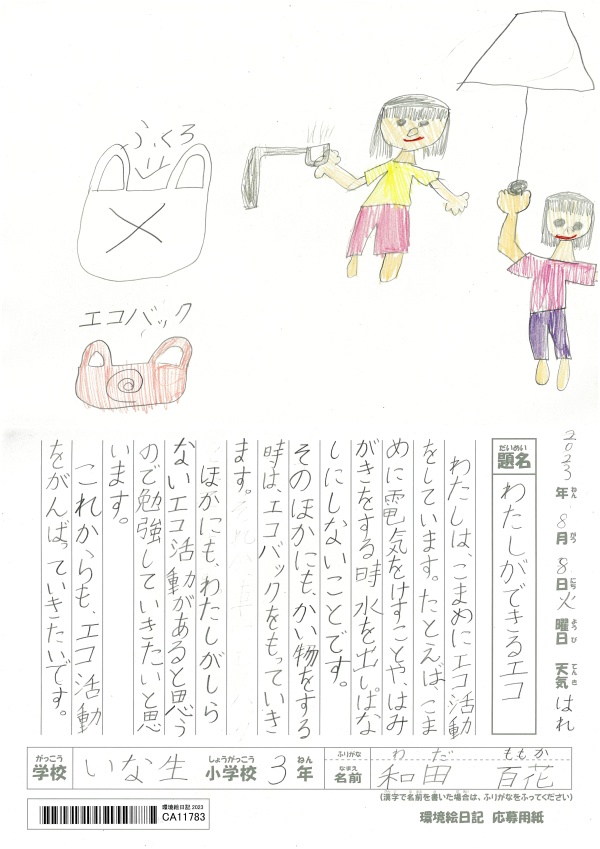 ふくろ
エコバック
2023年8月8日火曜日 天気はれ
ねん がつ にち ようび てんき
だいめい
題名 わたしができるエコ
わたしは、こまめにエコ活動
をしています。たとえば、こま
めに電気をけすことや、はみ
がきをする時水を出しぱな
しにしないことです。
そのほかにも、かい物をする
時は、エコバックをもっていき
ます。
ほかにも、わたしがしら
ないエコ活動があると思う
ので勉強していきたいと思
います。
これからも、エコ活動
をがんばっていきたいです。
がっこう しょうがっこう ねん
学校 いな生 小学校 3年
ふりがな わだ ももか
なまえ
名前 和田 百花
(漢字で名前を書いた場合は、ふりがなをふってください)
環境絵日記 2023
CA11783
環境絵日記 応募用紙